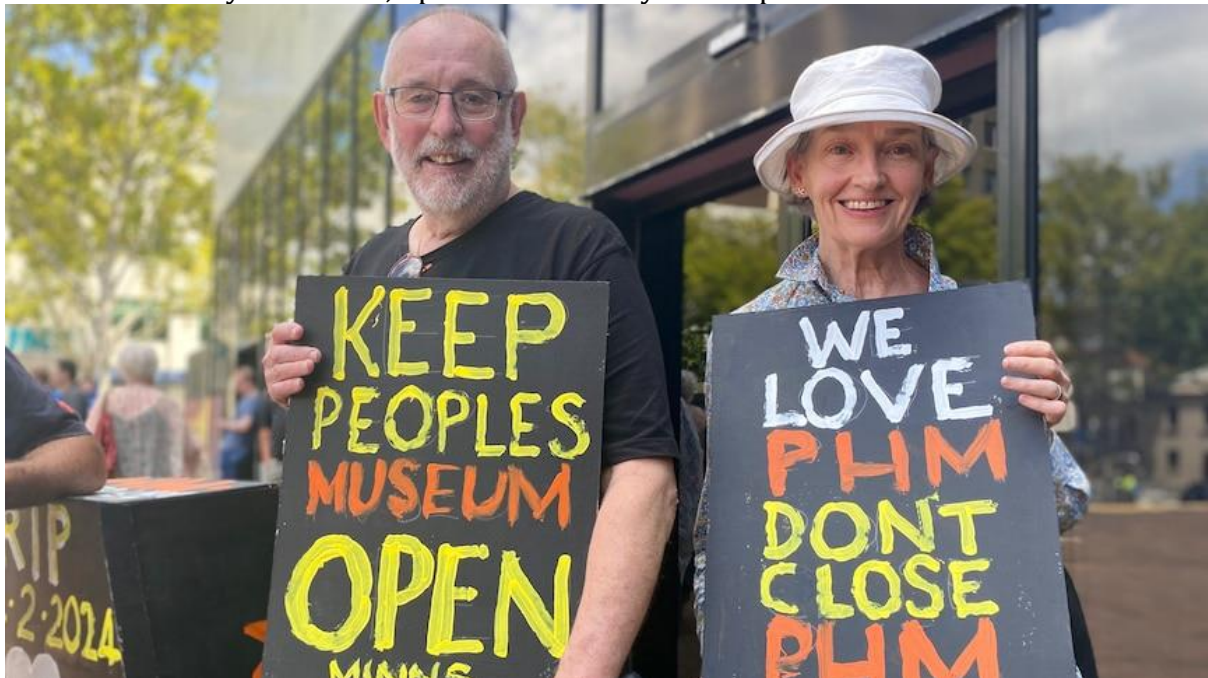 KEEP
PEOPLES
MUSEUM
OPEN
MINNS
WE
LOVE
PHM
DONT
CLOSE
PHM
RIP
2·2024